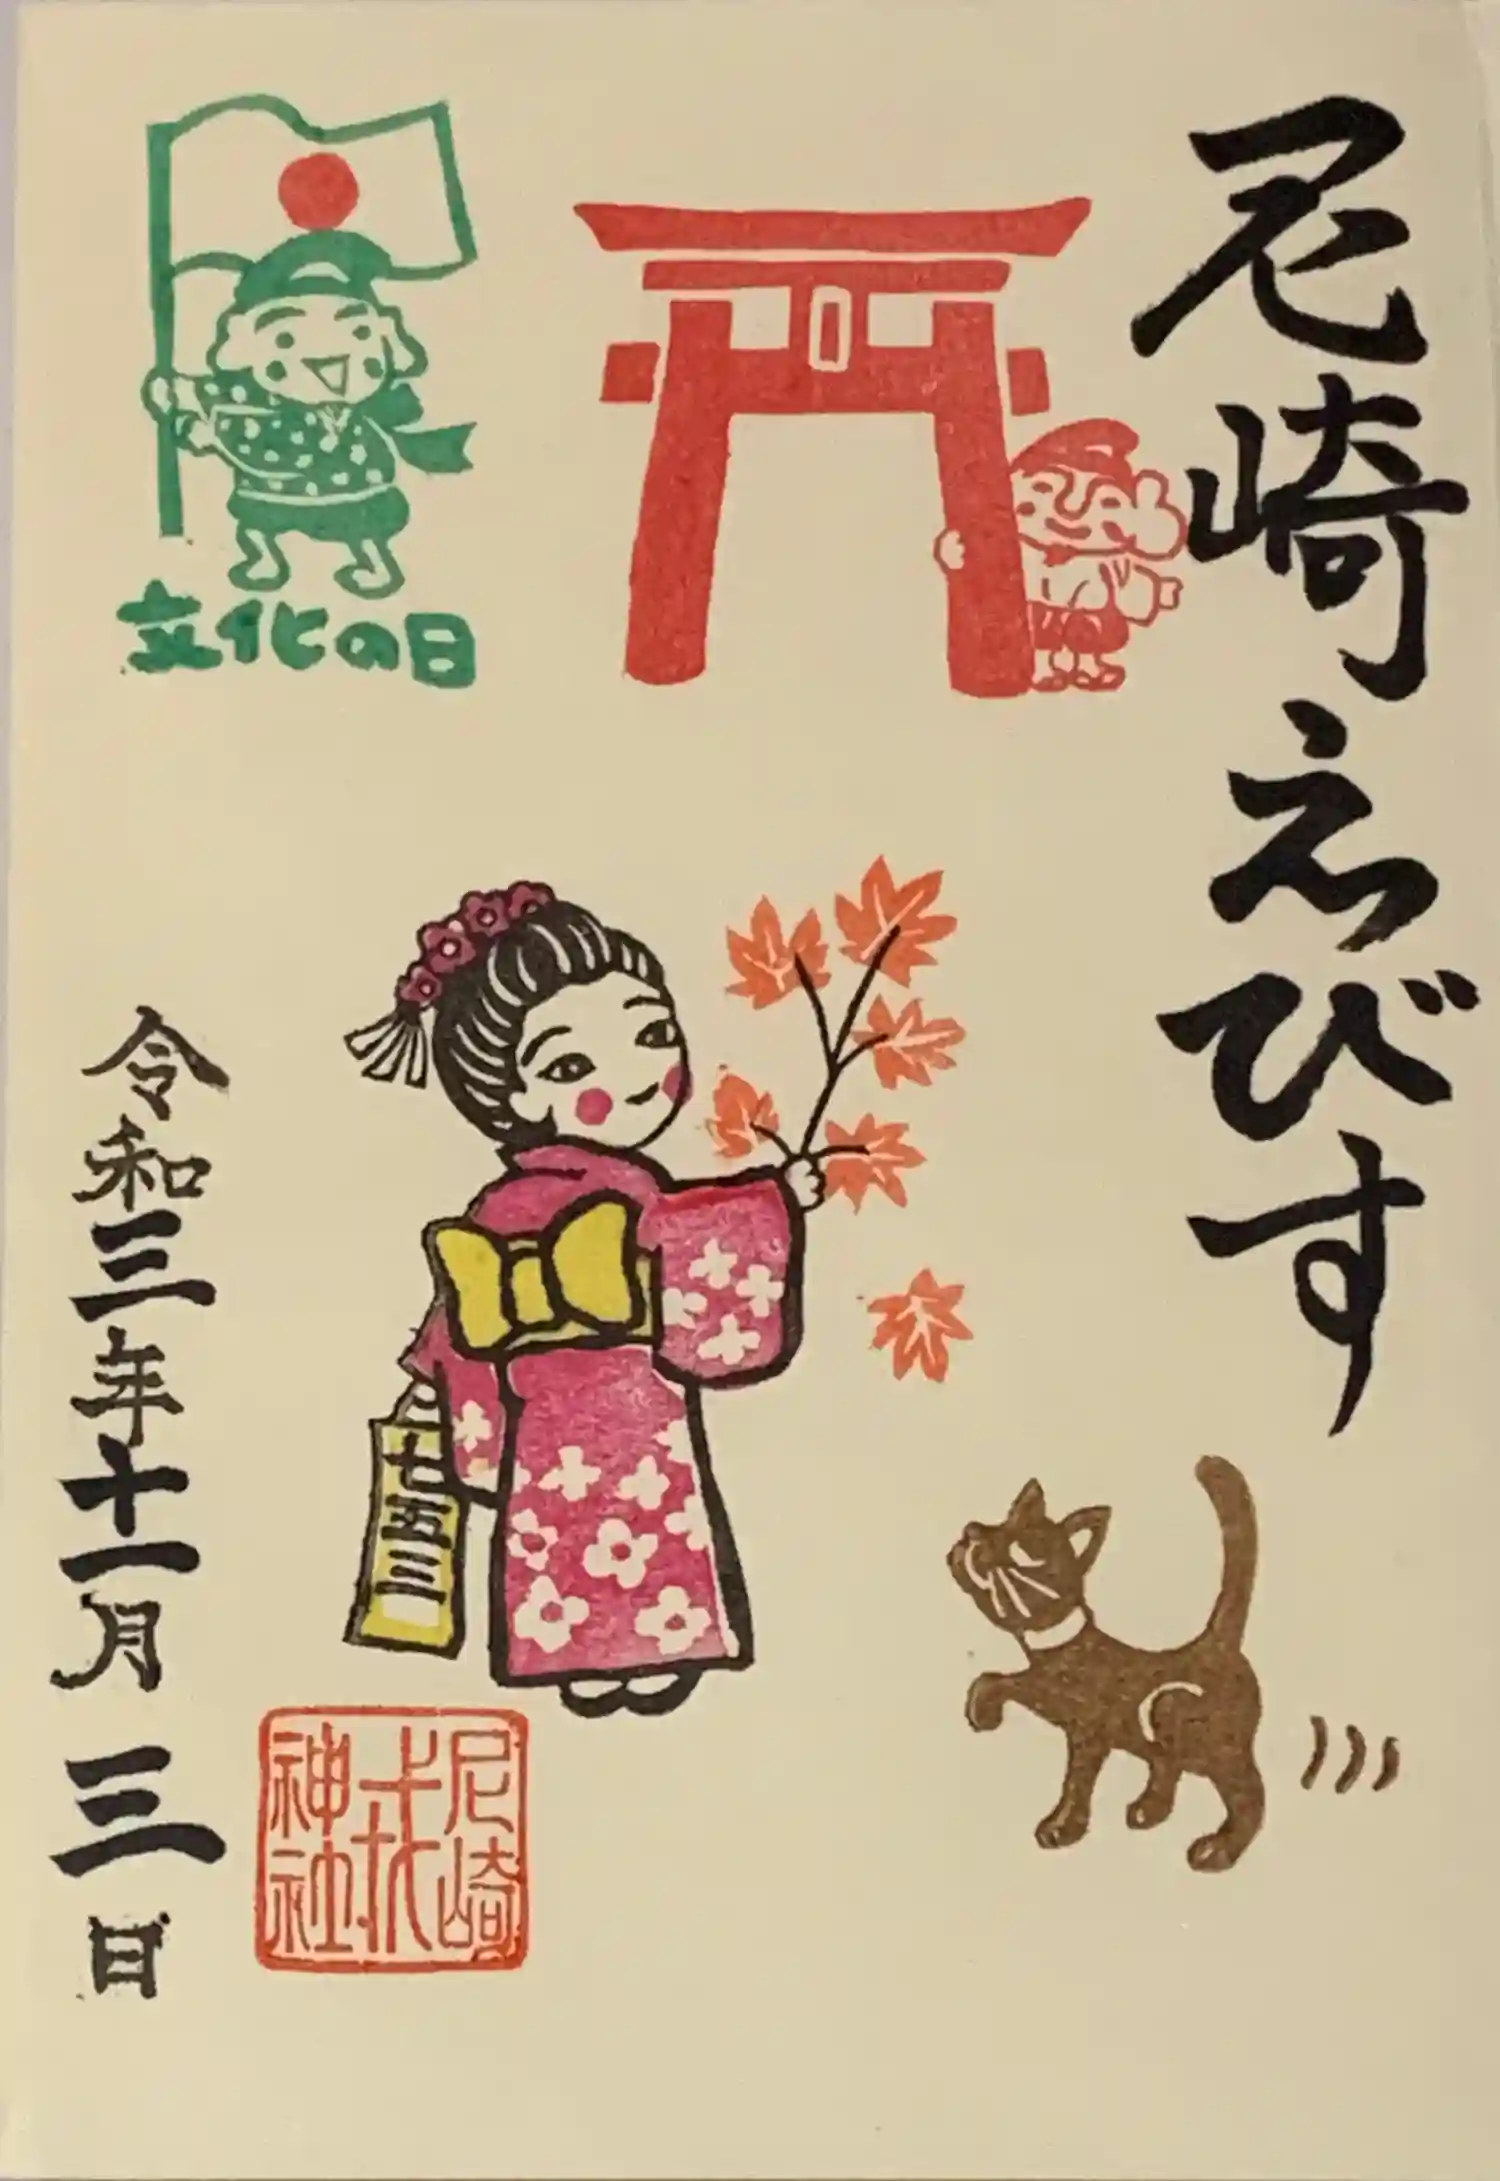 尼崎えびす
文化の日
七五三
令和三年十一月三日
尼崎
戎
神社